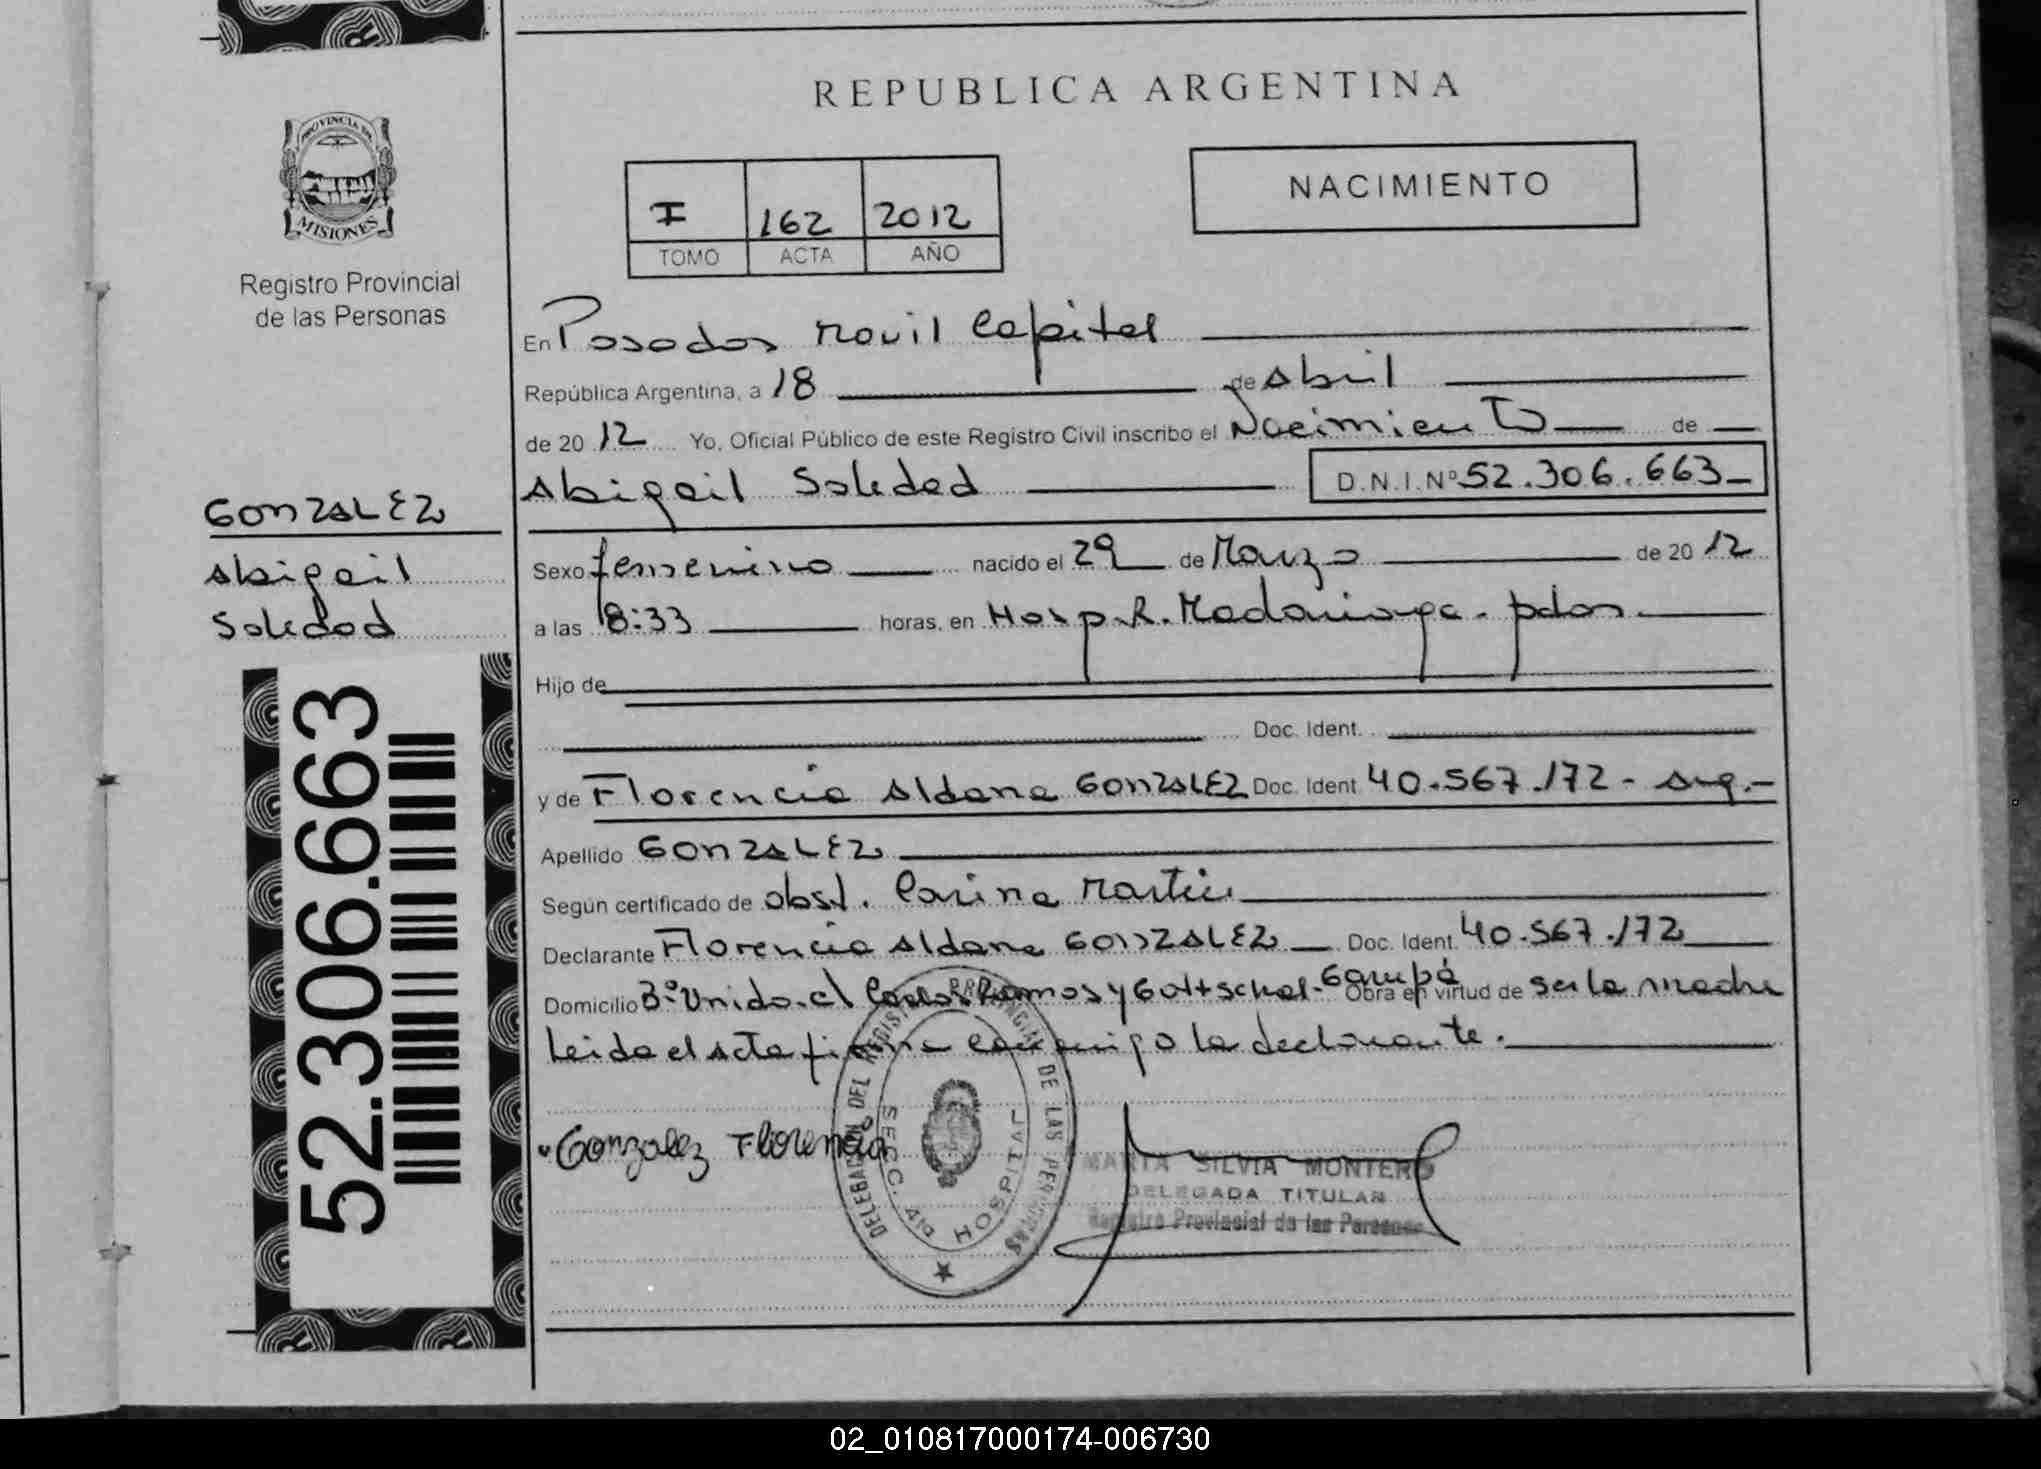 REPUBLICA ARGENTINA
PROVINCIA DE
MISIONES
Registro Provincial
de las Personas
I 162 2012
TOMO ACTA AÑO
NACIMIENTO
En Posadas Movil Capital
República Argentina, a 18 de Abril
de 2012 Yo, Oficial Público de este Registro Civil inscribo el Nacimiento de
Abigail Soledad D.N.I.Nº 52.306.663
GONZALEZ
Abigail
Soledad
Sexo femenino nacido el 29 de Marzo de 2012
a las 8:33 horas, en Hosp. R. Madariaga - pdas.
Hijo de
Doc. Ident.
y de Florencia Aldana GONZALEZ Doc. Ident 40.567.172 - arg.-
Apellido GONZALEZ
Según certificado de obst. Carina Martin
Declarante Florencia Aldana GONZALEZ Doc. Ident. 40.567.172
Domicilio Bº Unido. c/ Carlos Ramos y Gottschal. Garupá Obra en virtud de ser la madre
Leida el acta firma conmigo la declarante.
Gonzalez Florencia
DELEGACION DEL REGISTRO PROVINCIAL DE LAS PERSONAS
SECC. 4ta HOSPITAL
MARTA SILVIA MONTERO
DELEGADA TITULAR
Registro Provincial de las Personas
52.306.663
02_010817000174-006730